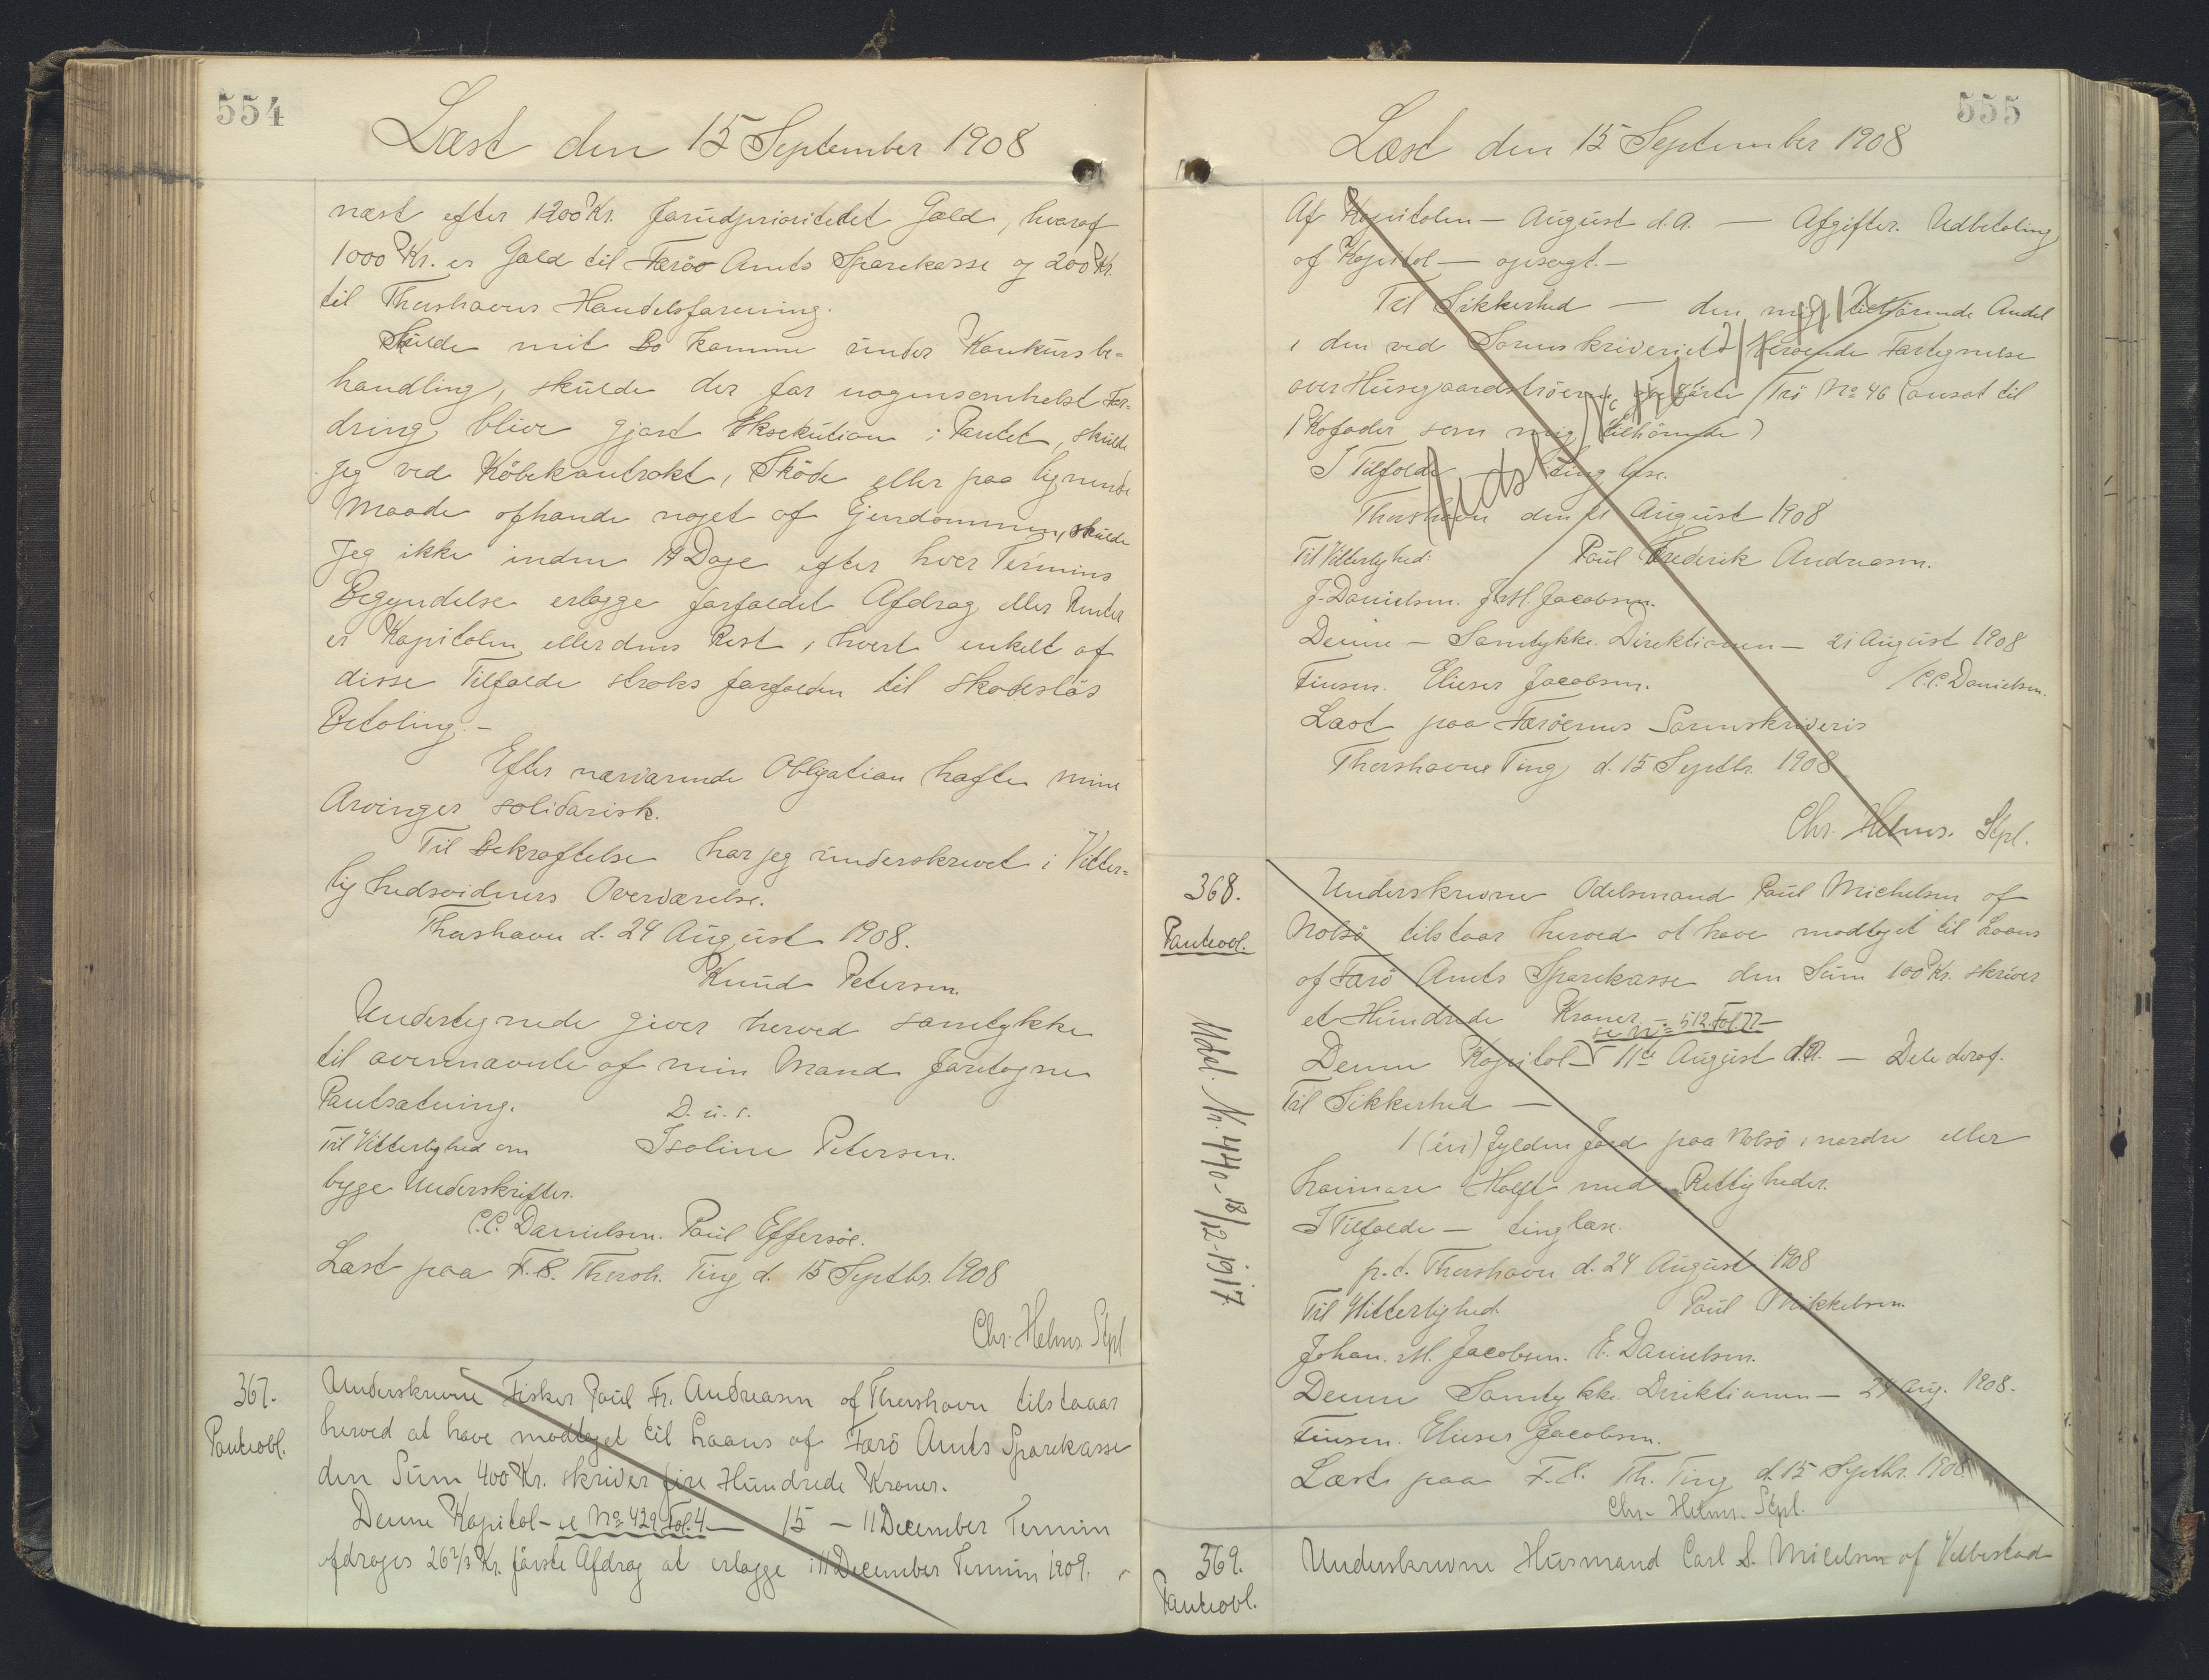 554
Læst den 15 September 1908
næst efter 1200 Kr. forudprioritetet Gæld, hvoraf
1000 Kr. er Gæld til Færöo Amts Sparekasse og 200 Kr.
til Thorshavns Handelsforening.
Skulde mit Bo komme under Konkursbe-
handling, skulde der for nogensomhelst For-
dring blive gjort Eksekution i Pantet, skulde
jeg ved Köbekontrakt, Sköde eller paa lignende
Maade afhænde noget af Ejendommen, skulde
Jeg ikke inden 14 Dage efter hver Termins
Begyndelse erlægge forfaldet Afdrag eller Renter
er Kapitalen eller dens Rest i hvert enkelt af
disse Tilfælde straks forfalden til skadeslös
Betaling. -
Efter nærværende Obligation hæfter mine
Arvinger solidarisk.
Til Bekræftelse har jeg underskrevet i Vitter-
lighedsvidners Overværelse.
Thorshavn d. 24 August 1908.
Knud Petersen.
Undertegnede giver herved samtykke
til ovennævnte af min Mand foretagne
Pantsætning.
D. u. s.
Til Vitterlighed om Isoline Petersen.
begge Underskrifter.
C.C. Danielsen. Poul Effersöe.
Læst paa F. S. Thorsh. Ting d. 15 Septbr. 1908
Chr. Helms. Stpl
367. Underskrevne Fisker Poul Fr. Andreasen af Thorshavn tilstaaar
Panteobl. herved at have modtaget til Laans af Færö Amts Sparekasse
den Sum 400 Kr. skriver fire Hundrede Kroner.
Denne Kapital - se No 429 Fol. 4 - 15 - 11 December Termin
afdrages 26 2/3 Kr. förste Afdrag at erlægge i 11 December Termin 1909.
555
Læst den 15 September 1908
Af Kapitalen - August d.A. - Afgifter. Udbetaling
af Kapital - opsagt. -
Til Sikkerhed - den mig tilhörende Andel
i den ved Sorenskriveriet beroende Fortegnelse
over Husegaardströerne opförte Trö No 46 (ansat til
1 Kofoder som mig tilhörende)
I Tilfælde - ting læse.
Thorshavn den 21 August 1908
Til Vitterlighed: Poul Frederik Andreasen.
J. Danielsen. J. M. Jacobsen.
Denne - Samtykke. Direktionen - 21 August 1908
Finsen. Elieser Jacobsen. /C.C. Danielsen.
Læst paa Færöernes Sorenskriveris
Thorshavns Ting d. 15 Septbr. 1908
Chr. Helms. Stpl.
368. Underskrevne Odelsmand Poul Michelsen af
Panteobl. Nolsö tilstaar herved at have modtaget til Laans
af Færö Amts Sparekasse den Sum 100 Kr. skriver
et Hundrede Kroner.
se No 512 Fol 77
Denne Kapital - 11te August d.A. - Dele deraf.
Til Sikkerhed -
1 (én) Gylden Jord paa Nolsö i nordre eller
haimare Halft med Rettigheder.
I Tilfælde - tinglæse.
p.t. Thorshavn d. 24 August 1908
Til Vitterlighed. Poul Mikkelsen.
Johan. M. Jacobsen. E. Danielsen.
Denne Samtykke. Direktionen - 24 Aug. 1908.
Finsen. Elieser Jacobsen.
Læst paa F. S. Th. Ting d. 15 Septbr. 1908
Chr. Helms. Stpl.
Udsl. Nr. 440 - 18/12 - 1917.
369. Underskrevne Husmand Carl S. Mikkelsen af Velbestad
Panteobl.